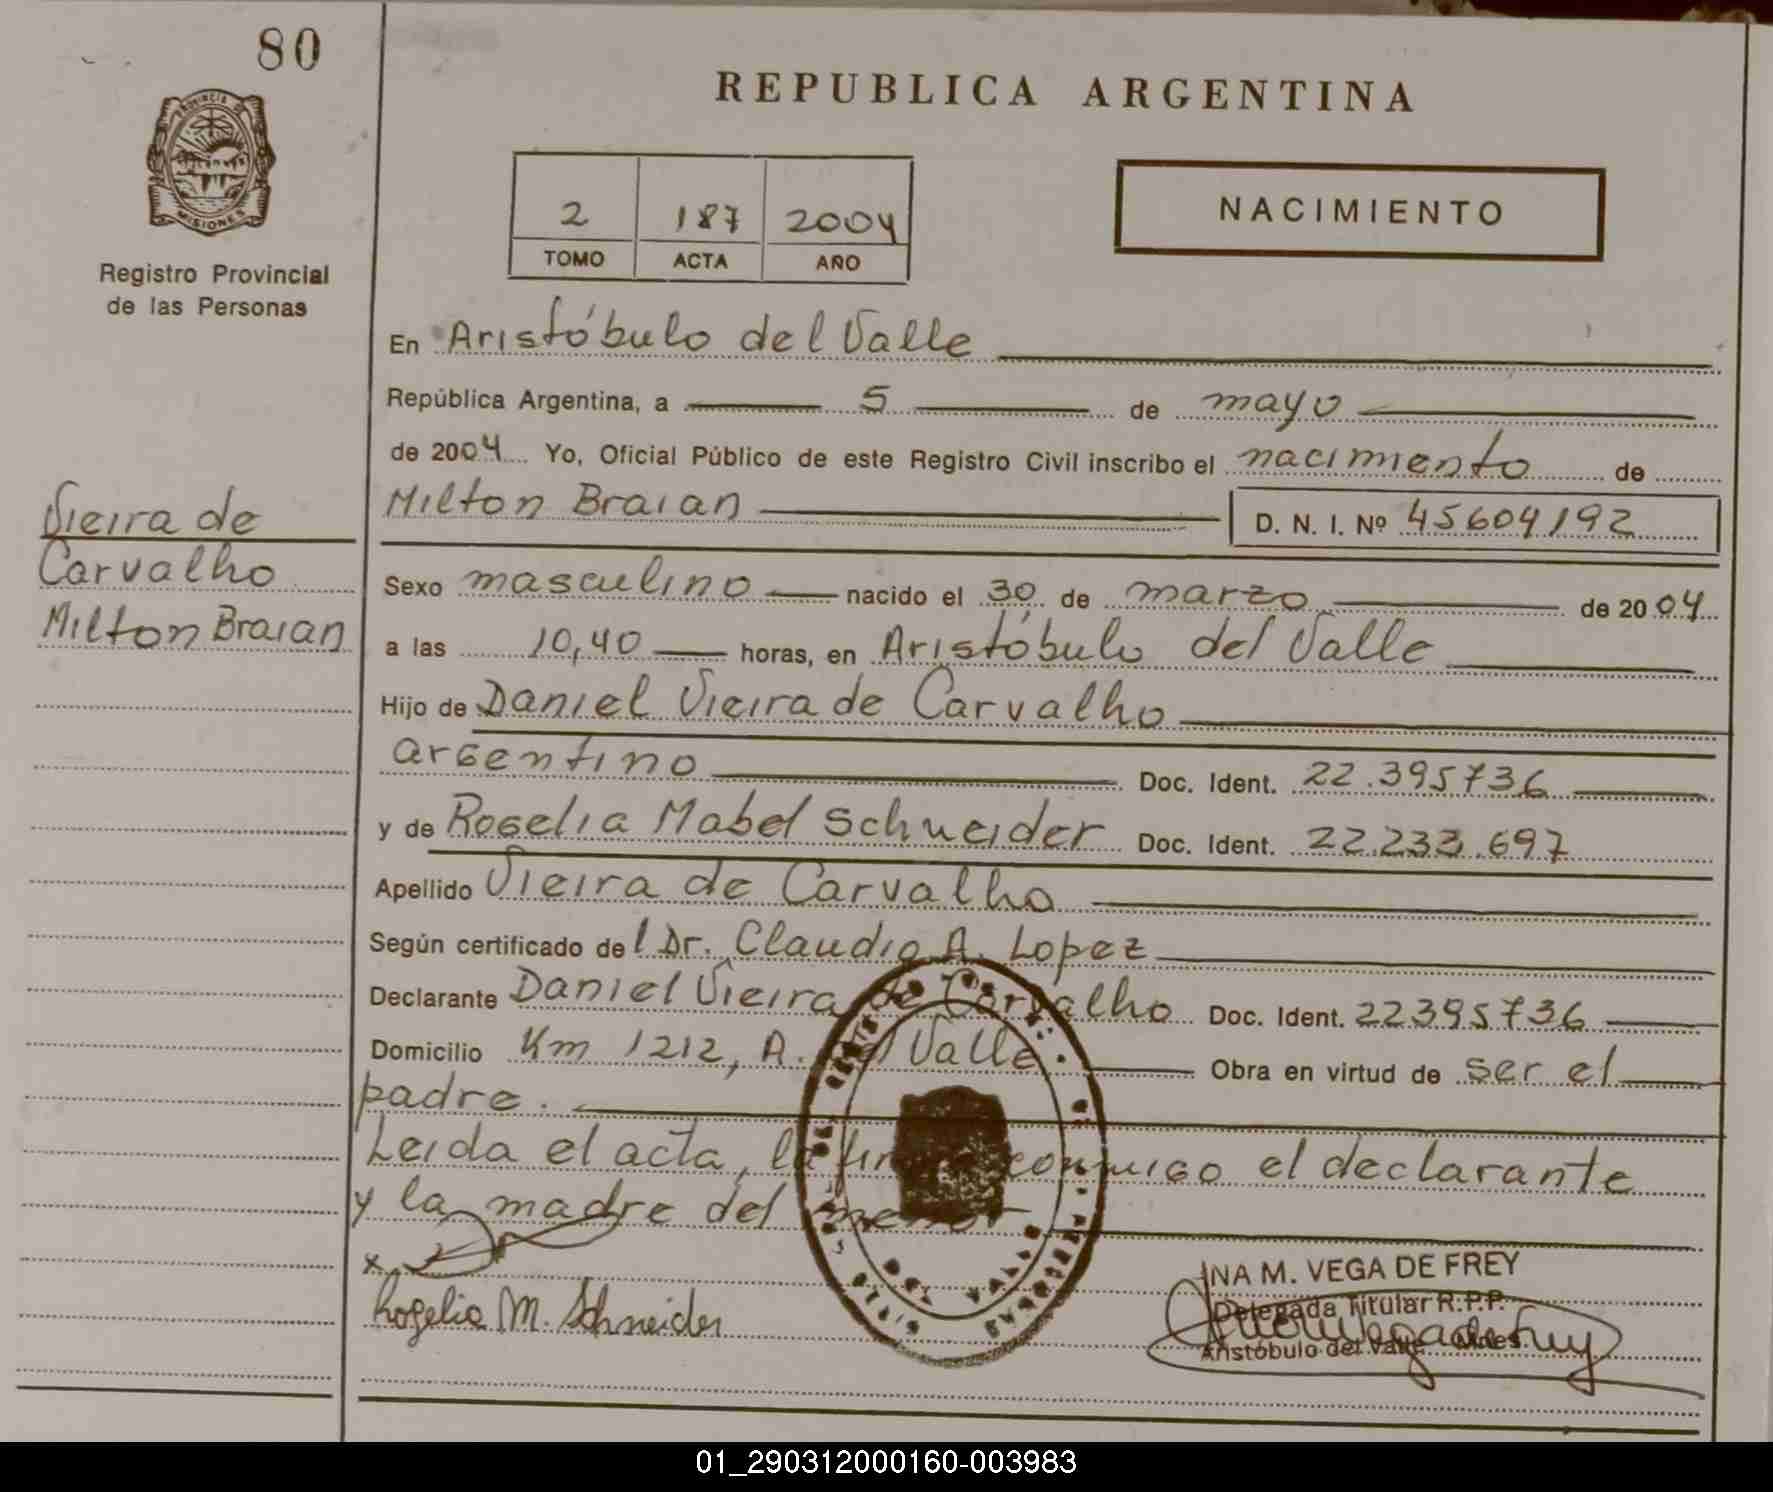 80
PROVINCIA DE
MISIONES
Registro Provincial
de las Personas
Vieira de
Carvalho
Milton Braian
REPUBLICA ARGENTINA
2 187 2004
TOMO ACTA AÑO
NACIMIENTO
En Aristóbulo del Valle
República Argentina, a 5 de mayo
de 2004 Yo, Oficial Público de este Registro Civil inscribo el nacimiento de
Milton Braian D. N. I. Nº 45604192
Sexo masculino nacido el 30 de marzo de 2004
a las 10,40 horas, en Aristóbulo del Valle
Hijo de Daniel Vieira de Carvalho
argentino Doc. Ident. 22.395736
y de Rogelia Mabel Schneider Doc. Ident. 22.233.697
Apellido Vieira de Carvalho
Según certificado del Dr. Claudio A. Lopez
Declarante Daniel Vieira de Carvalho Doc. Ident. 22395736
Domicilio Km 1212, A. del Valle Obra en virtud de ser el
padre.
Leida el acta, la firma conmigo el declarante
y la madre del menor
x
Rogelia M. Schneider
INA M. VEGA DE FREY
Delegada Titular R.P.P.
Aristóbulo del Valle Mnes.
01_290312000160-003983